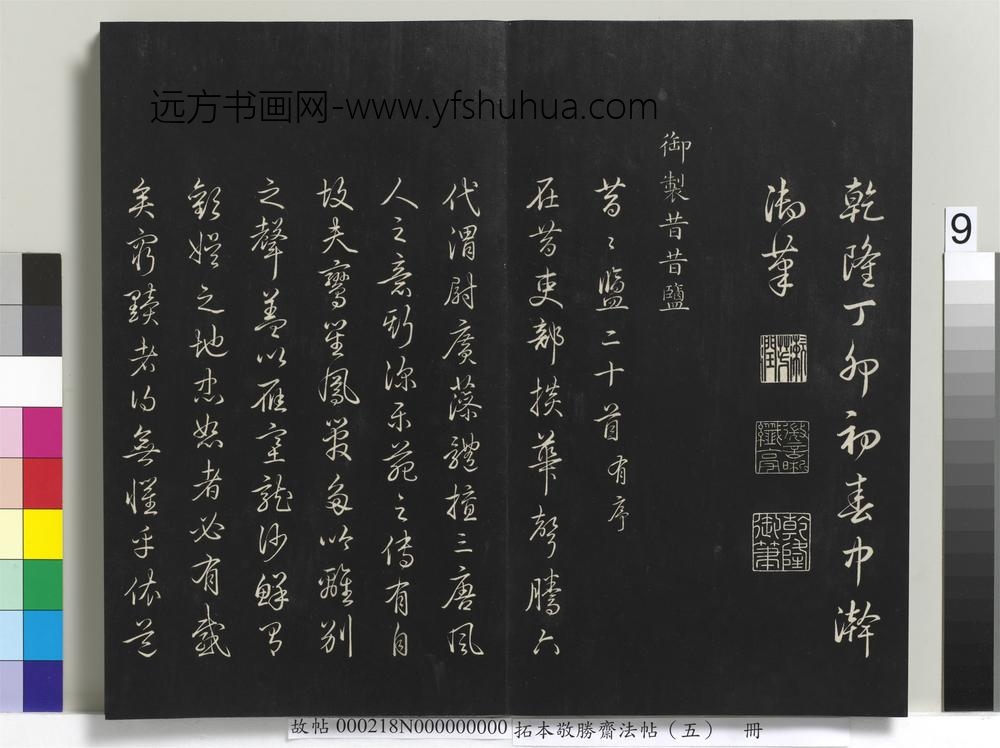 远方书画网-www.yfshuhua.com
乾隆丁卯初春中澣
御筆
乾隆御筆
御製昔昔鹽
昔〻鹽二十首有序
在昔吏部掞華聲騰六
代渭尉廣藻體擅三唐風
人之意斯深樂苑之傳有自
故夫鸞笙鳳管多吟離別
之聲蓋以雁塞龍沙鮮
歡娛之地忠恕者必有感
矣窮黷者得無懼乎依
9
故帖 000218N000000000 拓本敬勝齋法帖（五） 冊